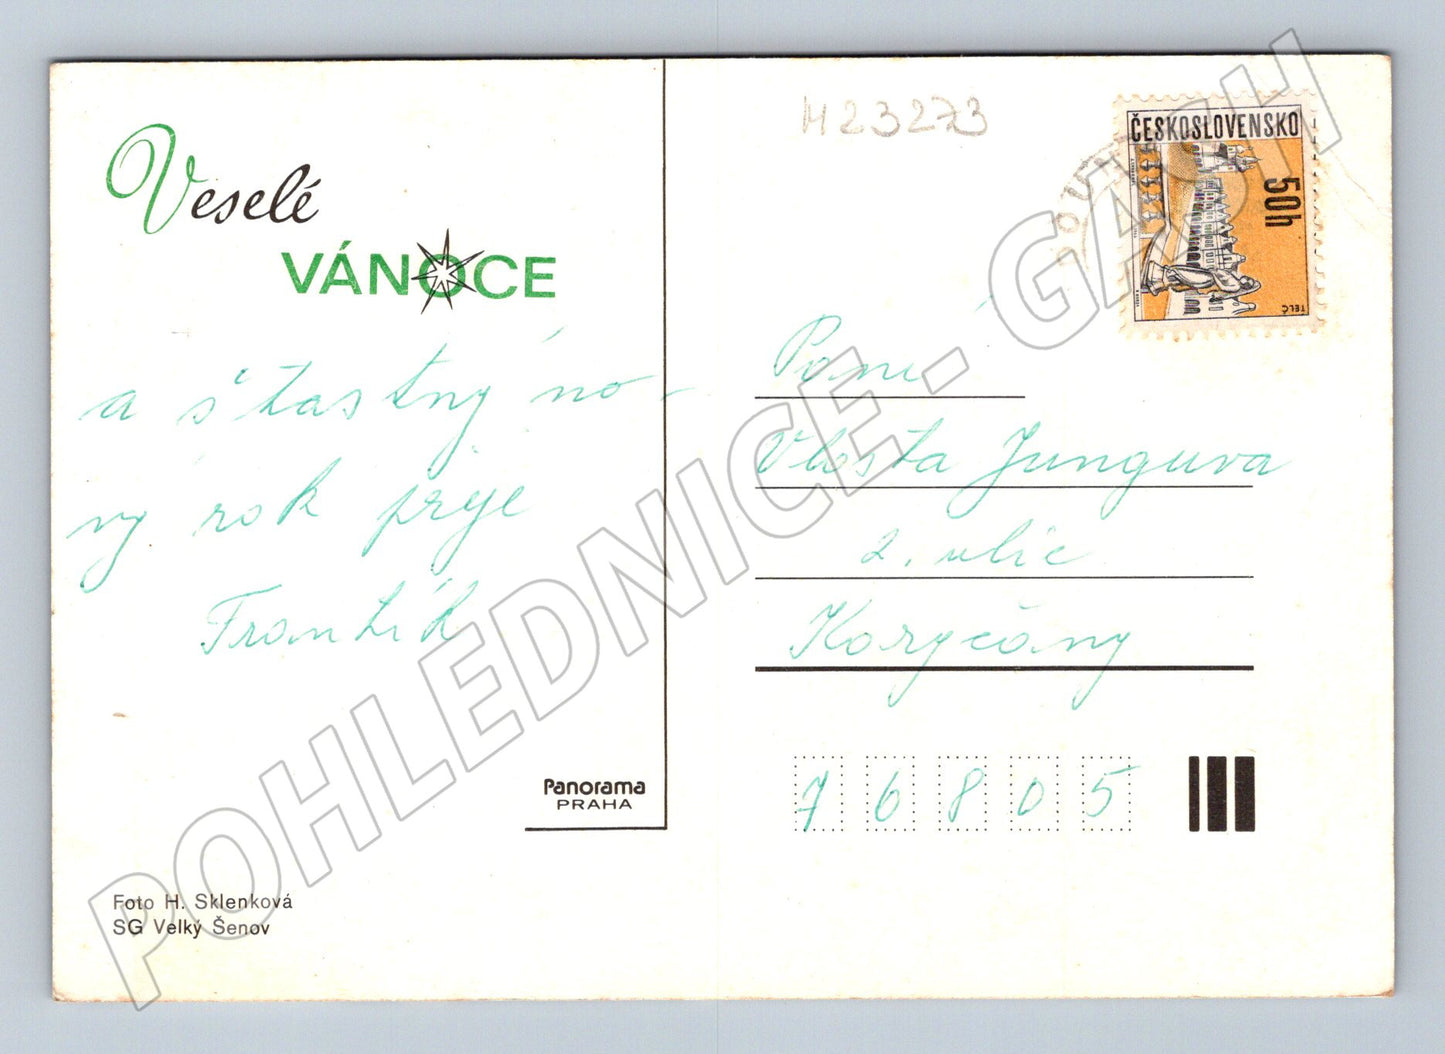 Veselé
VÁNOCE
a šťastný no-
vý rok přeje
Frantík
Panorama
PRAHA
Foto H. Sklenková
SG Velký Šenov
M23273
ČESKOSLOVENSKO
50h
TELČ
Paní
Vlasta Junguva
2. ulic
Koryčany
76805
POHLEDNICE - GASH